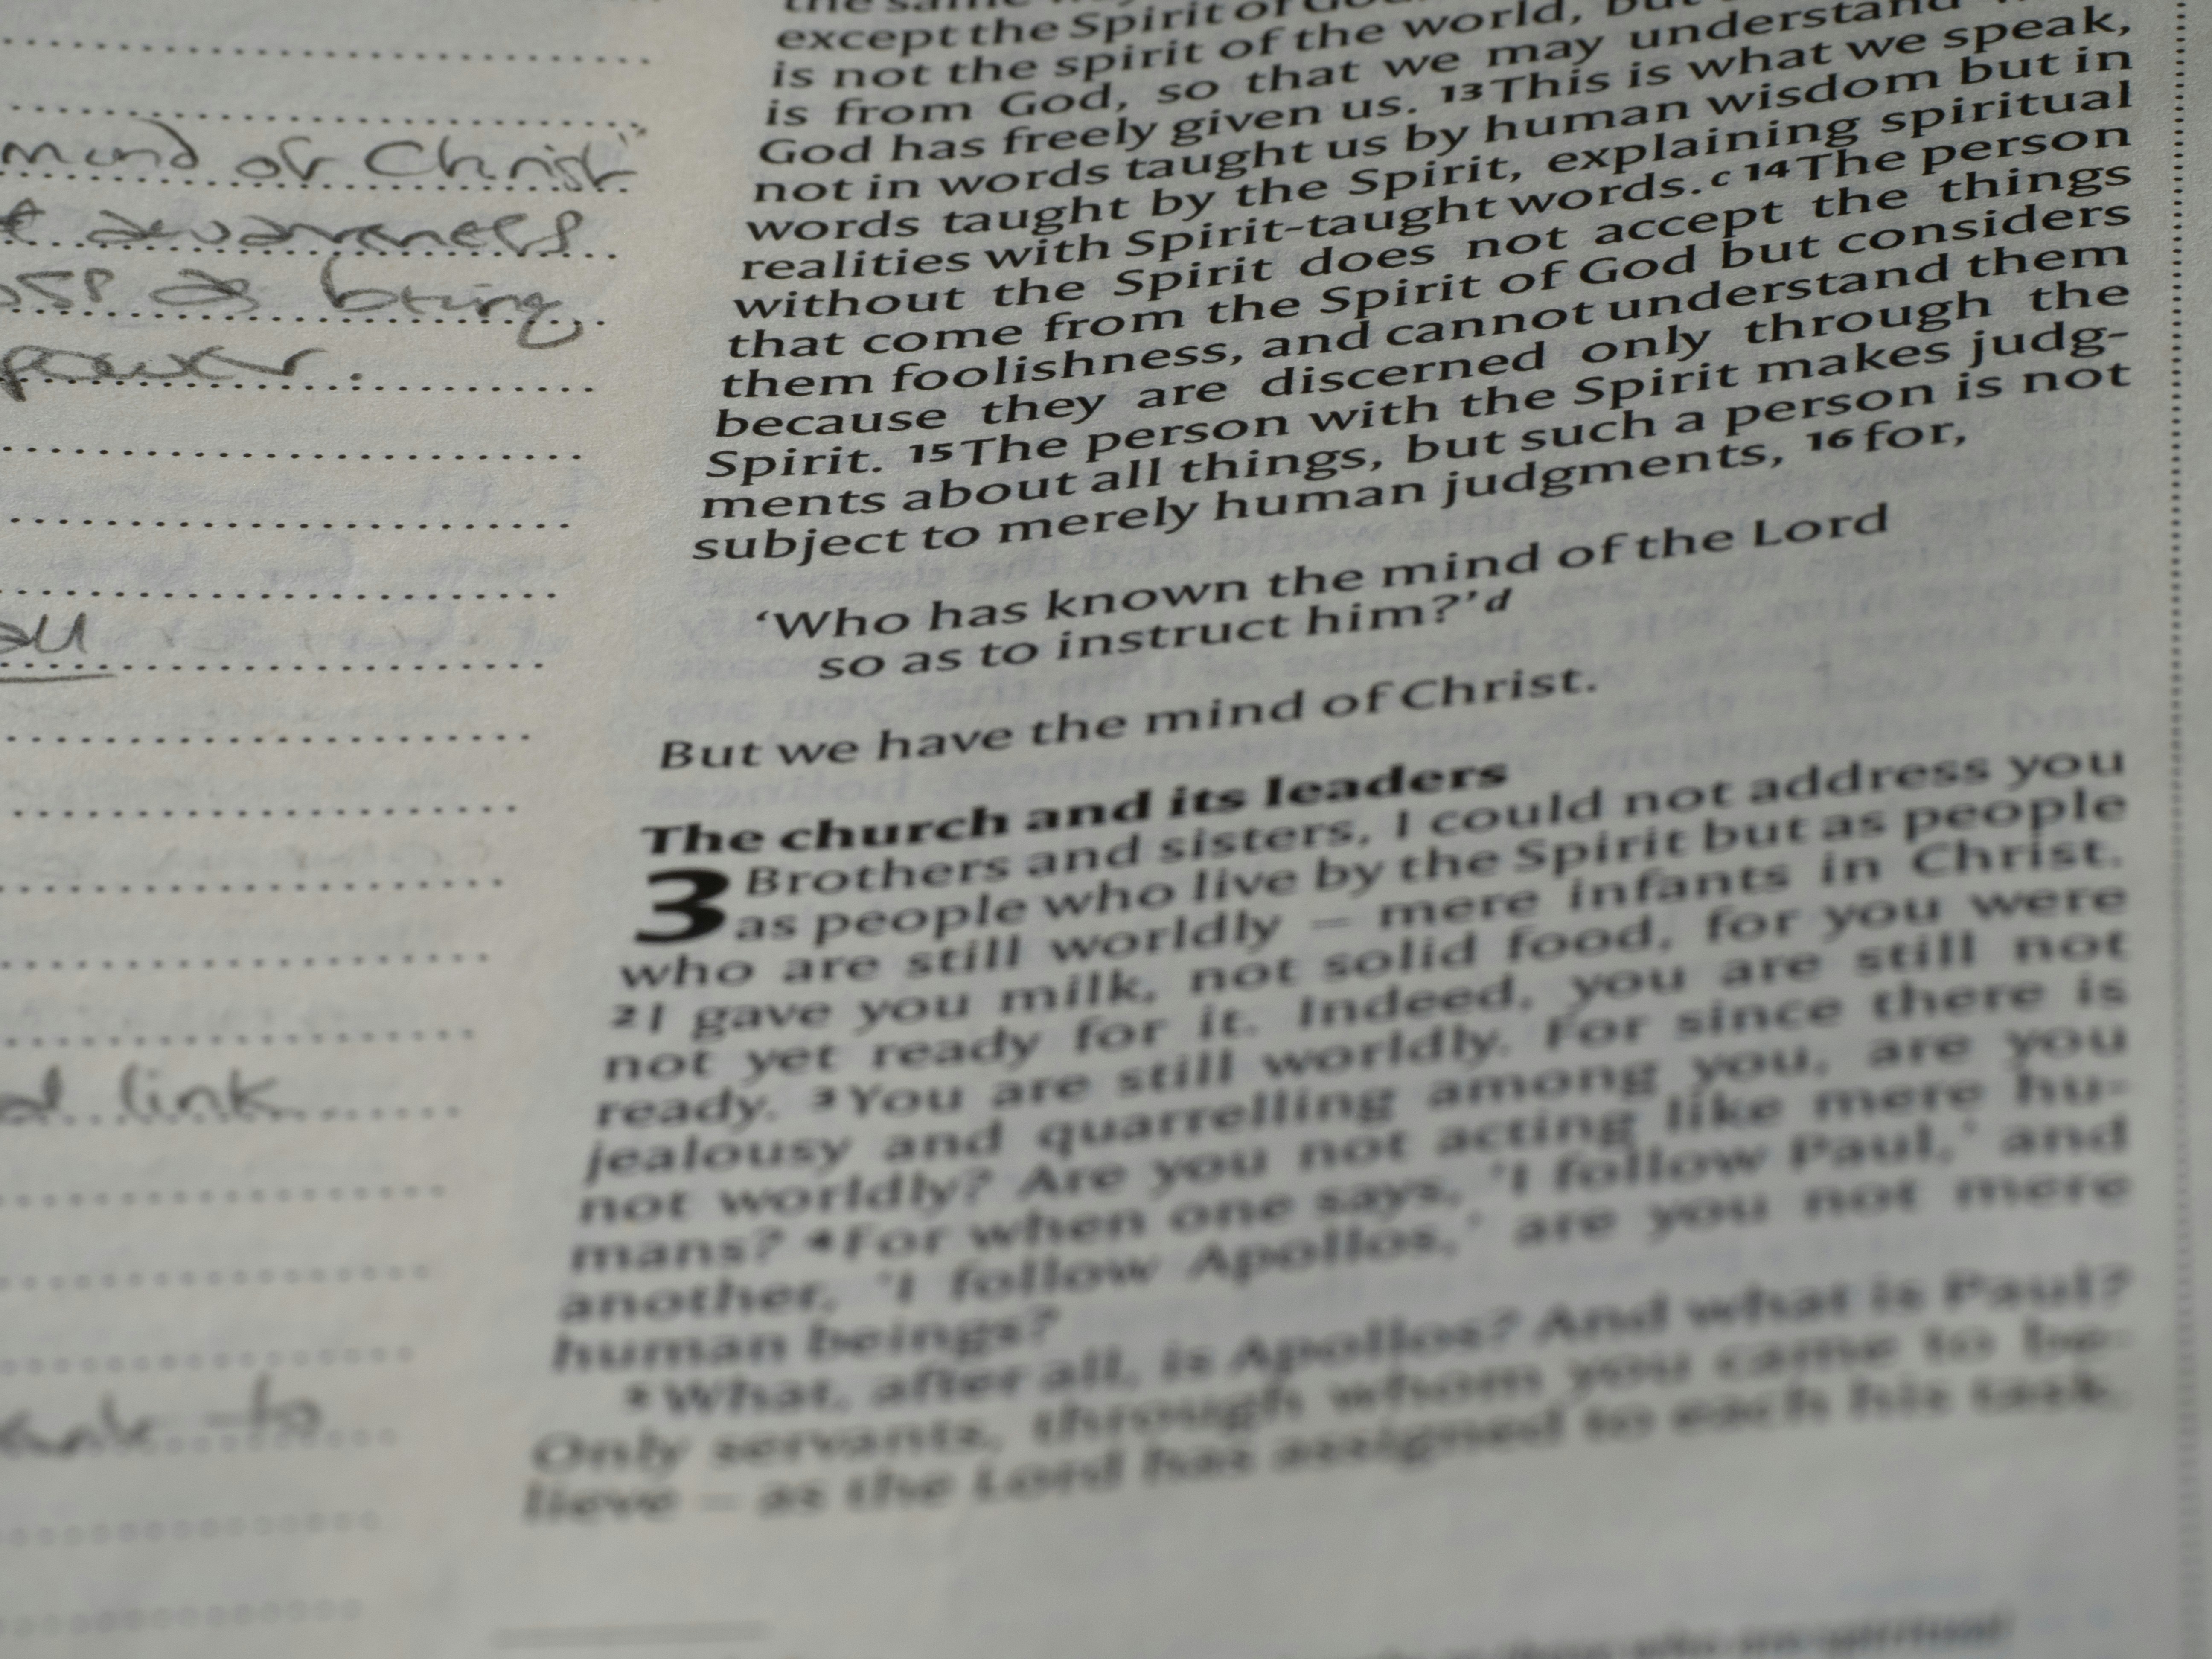 mind of Christ"
awareness
as being
all
link
to
except the Spirit of
is not the spirit of the world, but
is from God, so that we may understand
God has freely given us. 13 This is what we speak,
not in words taught us by human wisdom but in
words taught by the Spirit, explaining spiritual
realities with Spirit-taught words.c 14 The person
without the Spirit does not accept the things
that come from the Spirit of God but considers
them foolishness, and cannot understand them
because they are discerned only through the
Spirit. 15 The person with the Spirit makes judg-
ments about all things, but such a person is not
subject to merely human judgments, 16 for,
‘Who has known the mind of the Lord
so as to instruct him?’d
But we have the mind of Christ.
The church and its leaders
3 Brothers and sisters, I could not address you
as people who live by the Spirit but as people
who are still worldly – mere infants in Christ.
2 I gave you milk, not solid food, for you were
not yet ready for it. Indeed, you are still not
ready. 3 You are still worldly. For since there is
jealousy and quarrelling among you, are you
not worldly? Are you not acting like mere hu-
mans? 4 For when one says, ‘I follow Paul,’ and
another, ‘I follow Apollos,’ are you not mere
human beings?
5 What, after all, is Apollos? And what is Paul?
Only servants, through whom you came to be-
lieve – as the Lord has assigned to each his task.